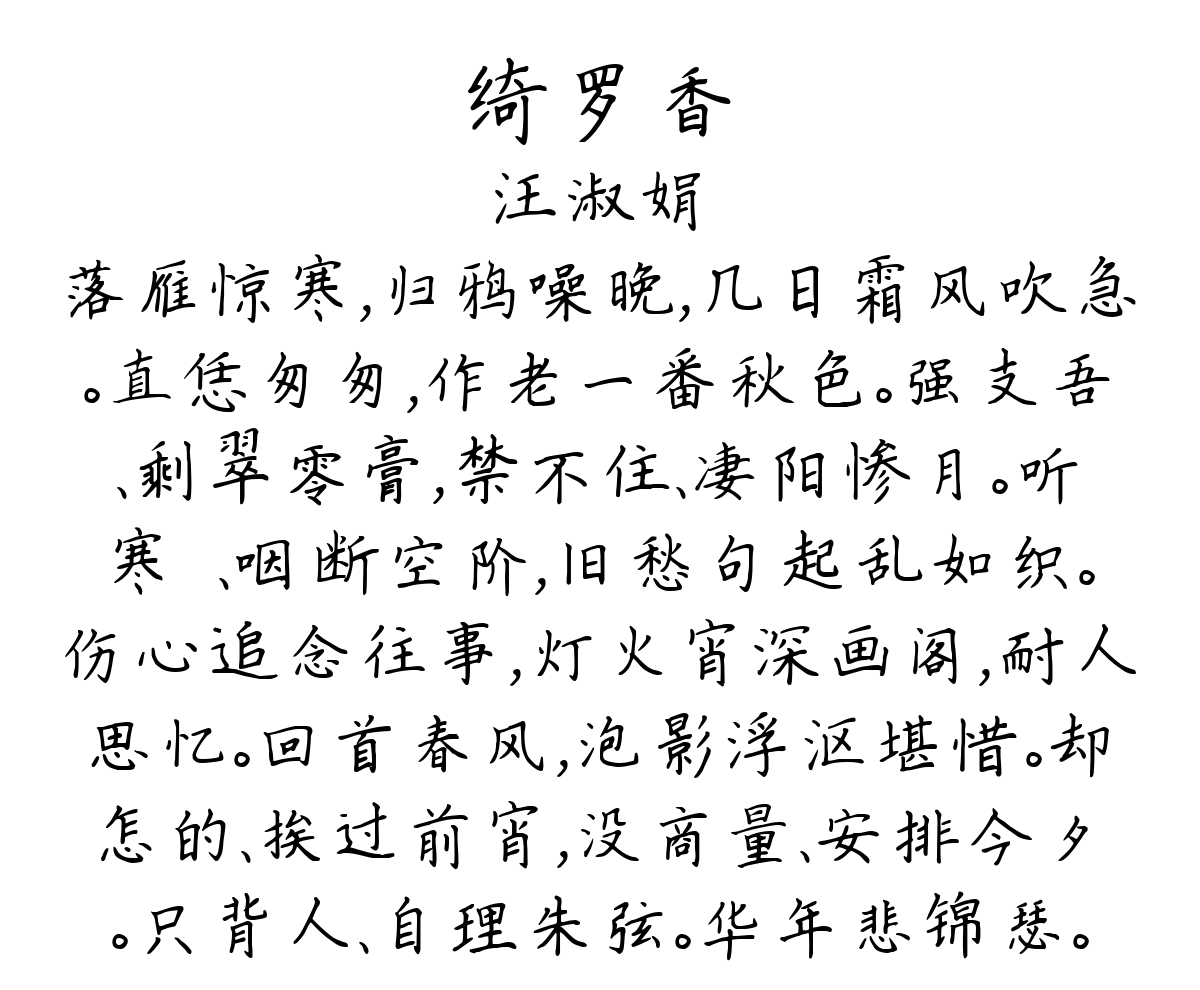 绮罗香
汪淑娟
落雁惊寒,归鸦噪晚,几日霜风吹急
。直恁匆匆,作老一番秋色。强支吾
、剩翠零膏,禁不住、凄阳惨月。听
寒 、咽断空阶,旧愁句起乱如织。
伤心追念往事,灯火宵深画阁,耐人
思忆。回首春风,泡影浮沤堪惜。却
怎的、挨过前宵,没商量、安排今夕
。只背人、自理朱弦。华年悲锦瑟。